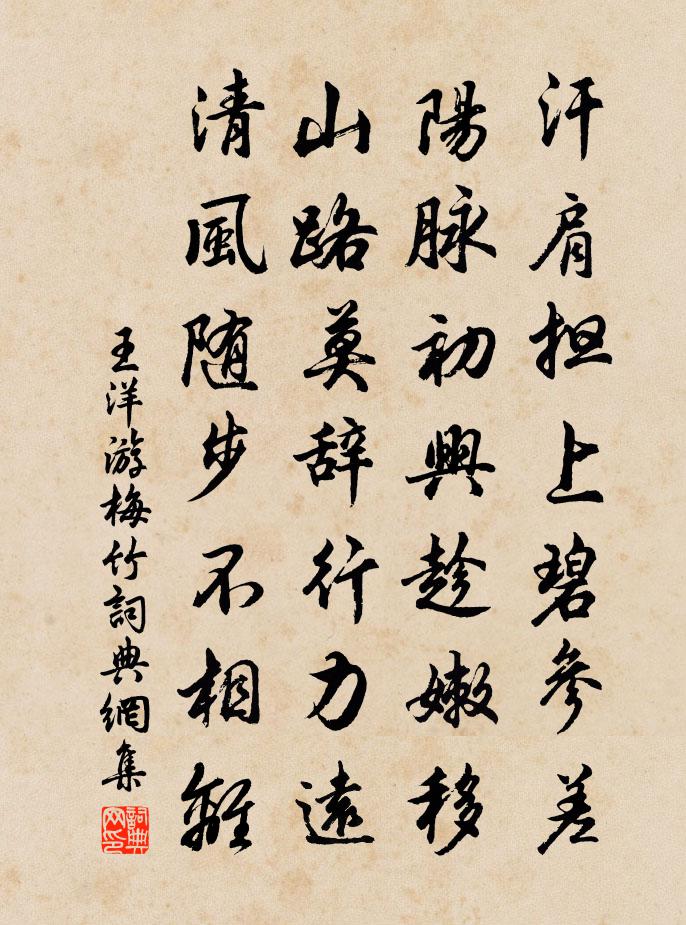 汗肩担上碧參差
陽脉初興趁嫩移
山路莫辞行力遠
清風随步不相離
王洋游梅竹詞典網集
詞典网印